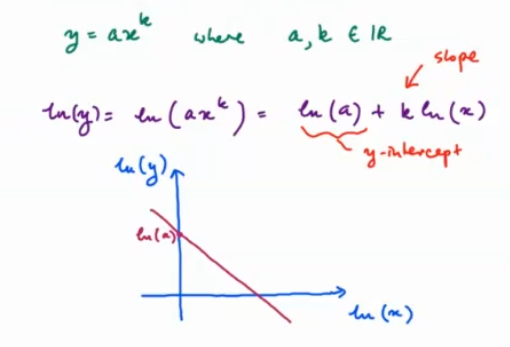 y = ax^k where a, k ∈ ℝ
slope
ln(y) = ln(ax^k) = ln(a) + k ln(x)
y-intercept
ln(y)
ln(a)
ln(x)